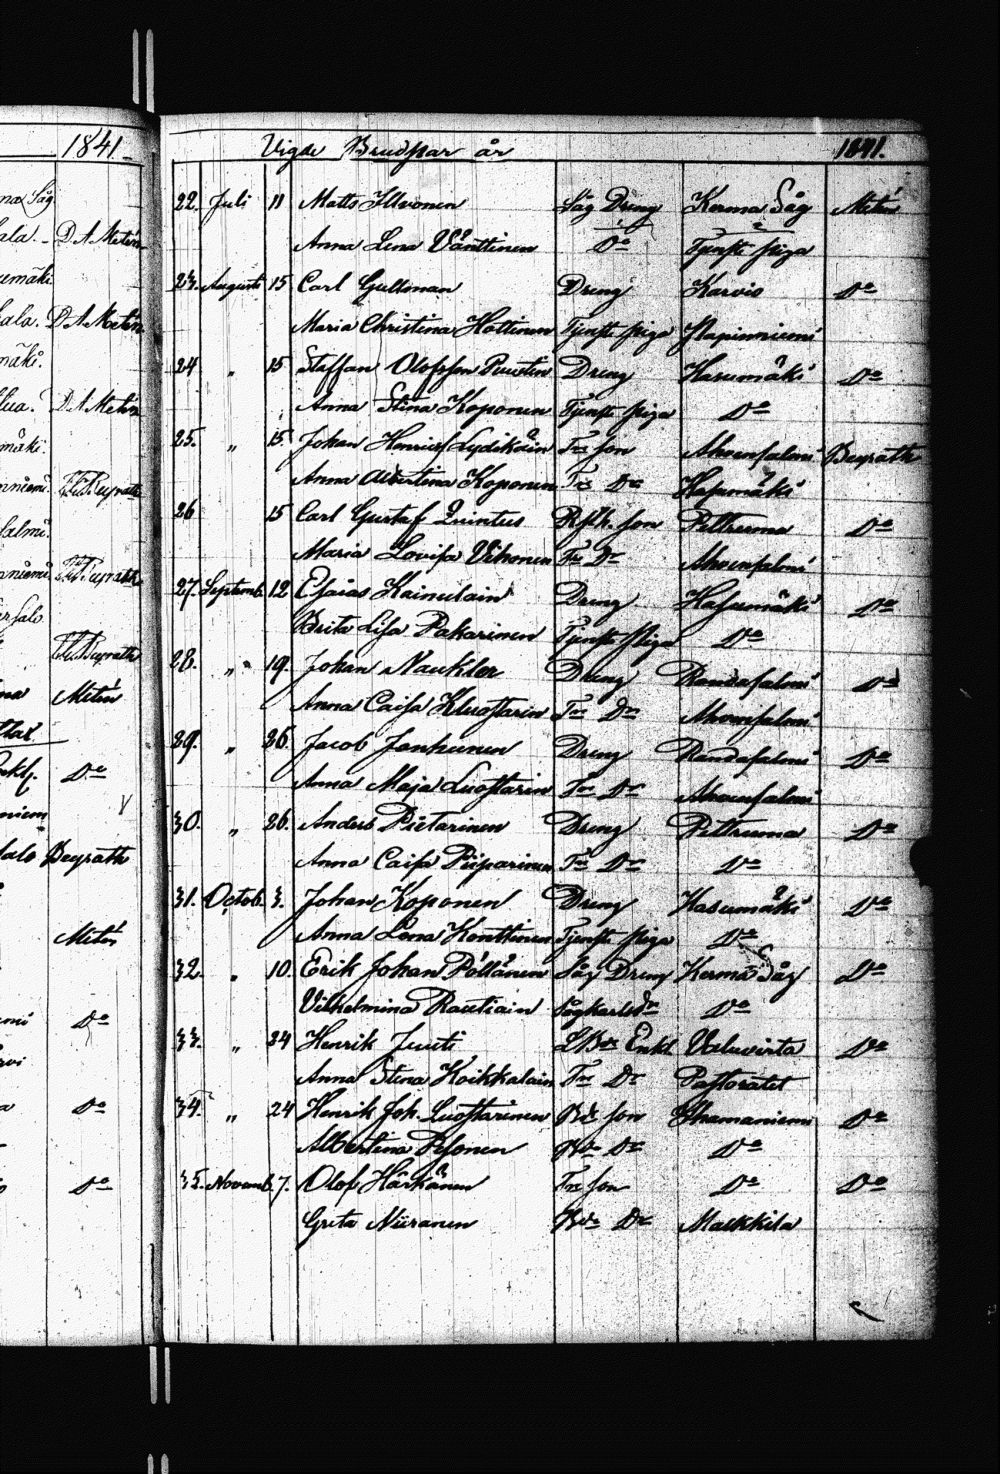 1841.
na Såg
ala. D A Metén
emäki
ala. D A Metén
mäki.
lua. D A Metén
mäki.
nniemi. F. F. Beyrath
salmi.
nniemi. F. F. Beyrath
F. F. Beyrath
na Metén
Do
niemi
salo Beyrath
Metén
Do
Do
Do
Vigde Brudpar år 1841.
22. Juli 11 Matts Ilvonen Såg Dreng Kerma Såg Metén
Anna Lena Vänttinen Do Tjenste piga
23. Augusti 15 Carl Gullman Dreng Karvio Do
Maria Christina Hottinen Tjenste piga Papinniemi
24 " 15 Staffan Olofsson Puustin Dreng Hasumäki Do
Anna Stina Koponen Tjenste piga Do
25. " 15. Johan Henric Lydikäin Trs son Ahvensalmi Beyrath
Anna Albertina Koponen Trs Dr Hasumäki
26 15 Carl Gustaf Quintus Rsth. son Petruma Do
Maria Lovisa Vihonen Trs Dr Ahvensalmi
27. Septemb. 12 Esaias Kainulain Dreng Hasumäki Do
Brita Lisa Pakarinen Tjenste Piga Do
28. " 19. Johan Naukler Dreng Randasalmi Do
Anna Caisa Kluostarin Trs Dr Ahvensalmi
29. " 26. Jacob Janhunen Dreng Randasalmi Do
Anna Maja Luostarin Trs Dr Ahvensalmi
30. " 26. Anders Pietarinen Dreng Petruma Do
Anna Caisa Piiparinen Trs Dr Do
31. Octob. 3. Johan Koponen Dreng Hasumäki Do
Anna Lena Konttinen Tjenste piga Do
32. " 10. Erik Johan Pöllänen Såg Dreng Kerma Såg Do
Vilhelmina Rautiain Sågkarls dr Do
33. " 24 Henrik Juuti Enkl Varluvirta Do
Anna Stina Koikkalain Trs Dr Pastoratet
34. " 24 Henrik Joh. Luostarinen Bds son Ihamaniemi Do
Albertina Pesonen Bds Dr Do
35. Novemb. 7. Olof Härkänen Trs son Do Do
Greta Niiranen Bds Dr Malkkila